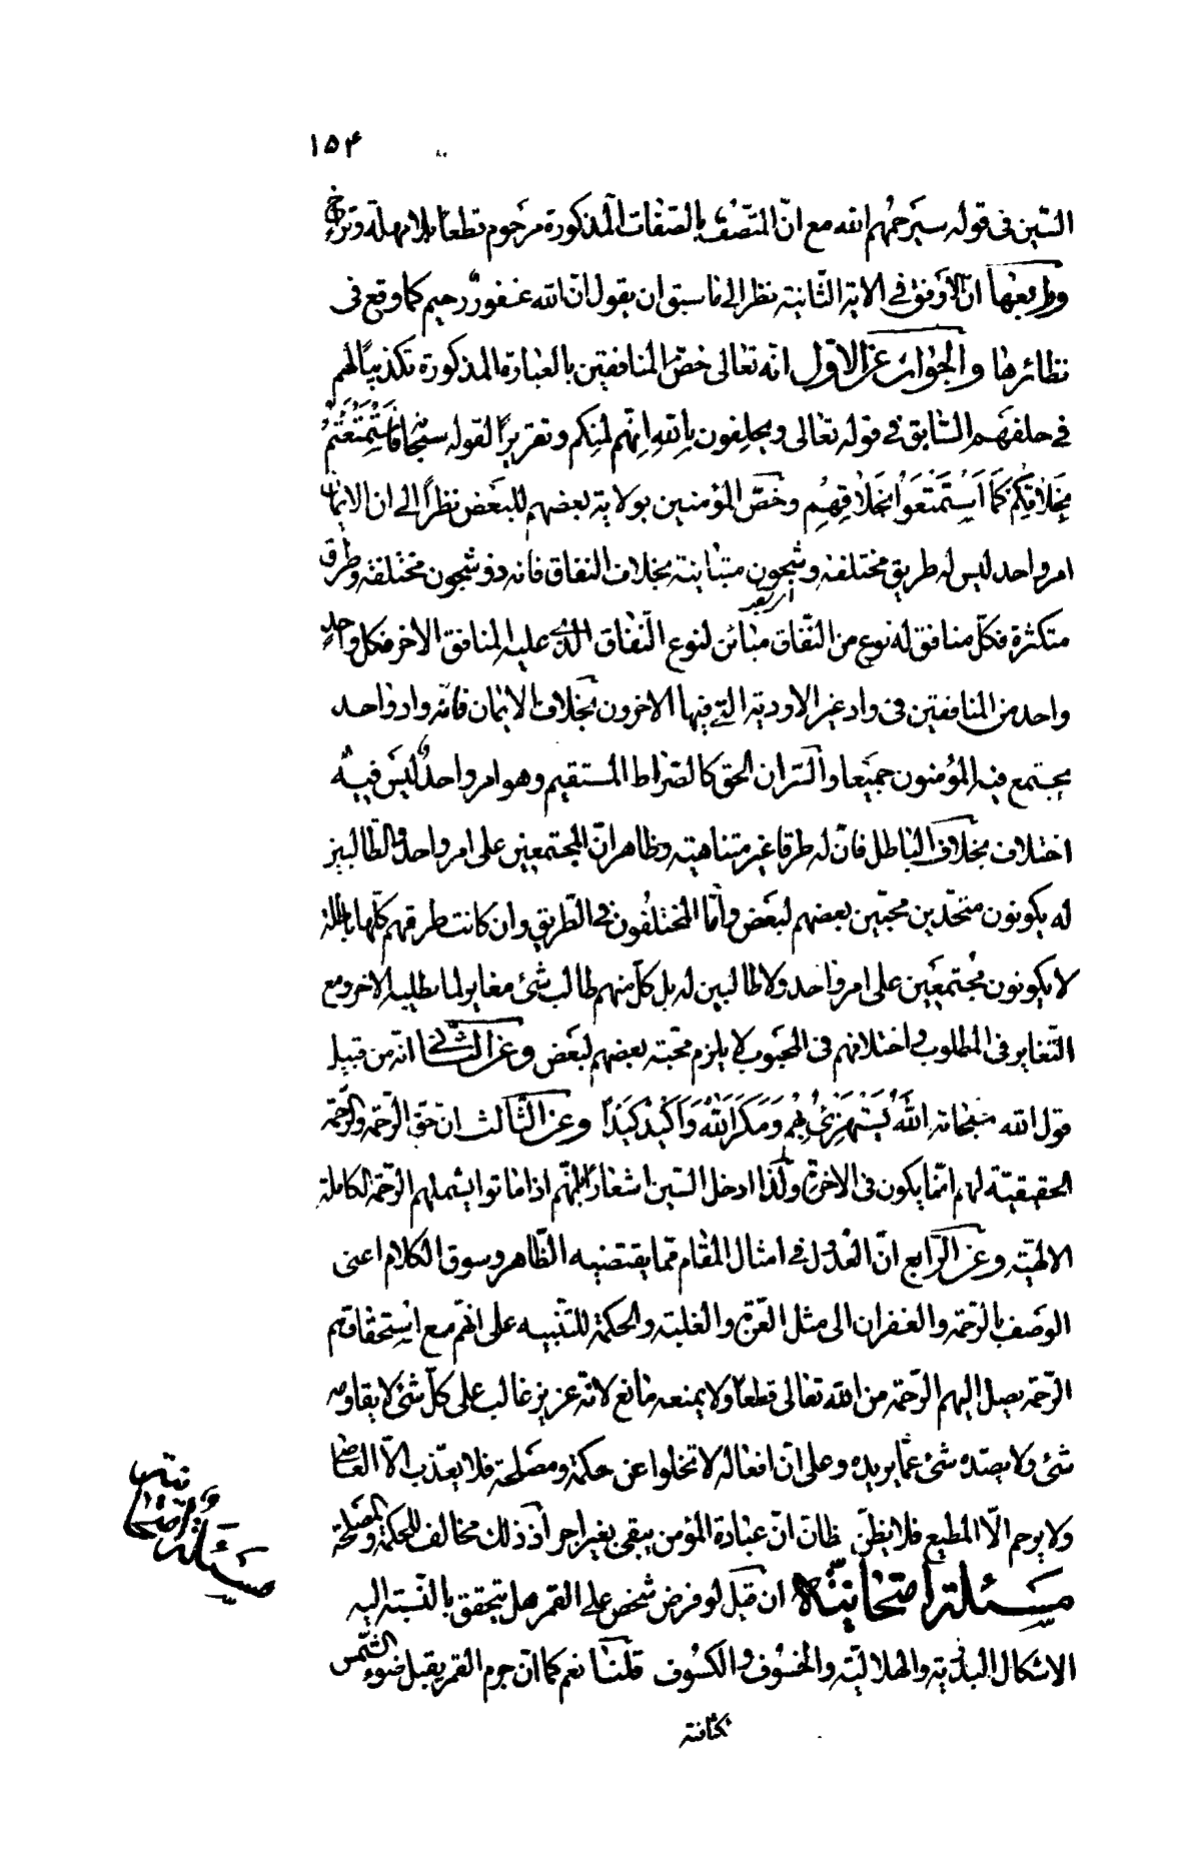 ۱۵۴
السّين فى قوله سيرحمهم الله مع انّ المتّصف بالصّفات المذكورة مرحوم قطعا بلا مهلة وتراخ
ورابعها انّ الاوفق فى الاية الثّانية نظرا الى ما سبق ان يقول انّ الله غفور رحيم كما وقع فى
نظائرها والجواب عن الاوّل انّه تعالى خصّ المنافقين بالعبارة المذكورة تكذيبًا لهم
فى حلفهم السّابق فى قوله تعالى ويحلفون بالله انّهم لمنكم وتقريرًا لقوله سبحانه فَاسْتَمْتَعْتُمْ
بِخَلَاقِكُمْ كَمَا اسْتَمْتَعَ بِخَلَاقِهِمْ وخصّ المؤمنين بولاية بعضهم للبعض نظرًا الى ان الايمان
امر واحد ليس له طريق مختلفة وشجون متباينة بخلاف النفاق فانه ذو شجون مختلفة وطرق
متكثرة فكلّ منافق له نوع من النّفاق مبائن لنوع النّفاق الذى عليه المنافق الاخر فكل واحد
واحد من المنافقين فى واد غير الاودية الّتى فيها الاخرون بخلاف الايمان فانّه واد واحد
يجتمع فيه المؤمنون جميعا والسّر ان الحق كالصّراط المستقيم وهو امر واحدٌ ليس فيه
اختلاف بخلاف الباطل فانّ له طرقا غير متناهية وظاهر انّ المجتمعين على امر واحد والطّالبين
له يكونون متحّدين محبّين بعضهم لبعض وامّا المختلفون فى الطّريق وان كانت طرقهم كلّها باطلة
لا يكونون مجتمعين على امر واحد ولا طالبين له بل كلّ منهم طالب شئ مغاير لما يطلبه الاخر ومع
التّغاير فى المطلوب واختلافهم فى المحبوب لا يلزم محبّة بعضهم لبعض وعن الثّانى انّه من قبيل
قول الله سبحانه اَللّٰهُ يَسْتَهْزِئُ بِهِمْ وَمَكَرَ اللّٰهُ وَاَكِيْدُ كَيْدًا وعن الثّالث انّ حقّ الرّحمة والرّحمة
الحقيقيّة لهم انّما يكون فى الاخرة ولذا ادخل السّين اشعارًا بانّهم اذا ماتوا يشملهم الرّحمة الكاملة
الالهيّة وعن الرّابع انّ العُدول فى امثال المقام ممّا يقتضيه الظّاهر وسوق الكلام اعنى
الوصف بالرّحمة والغفران الى مثل العزّة والغلبة والحكمة للتّنبيه على انّهم مع استحقاقهم
الرّحمة يصل اليهم الرّحمة من الله تعالى قطعًا ولا يمنعه مانع لانّه عزيز غالب على كلّ شئ لا يقاومه
شئ ولا يصدّه شئ عمّا يريده وعلى انّ افعاله لا تخلوا عن حكمة ومصلحة فلا يعذّب الّا العاصى
ولا يرحم الّا المطيع فلا يظنّ ظانّ انّ عبادة المؤمن يبقى بغير اجر اذ ذلك مخالف للحكمة والمصلحة
مسئلة امتحانيّة ان قيل لو فرض شخص على القمر هل يتحقق بالنّسبة اليه
الاشكال البدريّة والهلاليّة والخسوف والكسوف قلنا نعم كما انّ جرم القمر يقبل ضوء الشّمس
مسئلة امتحانيّة